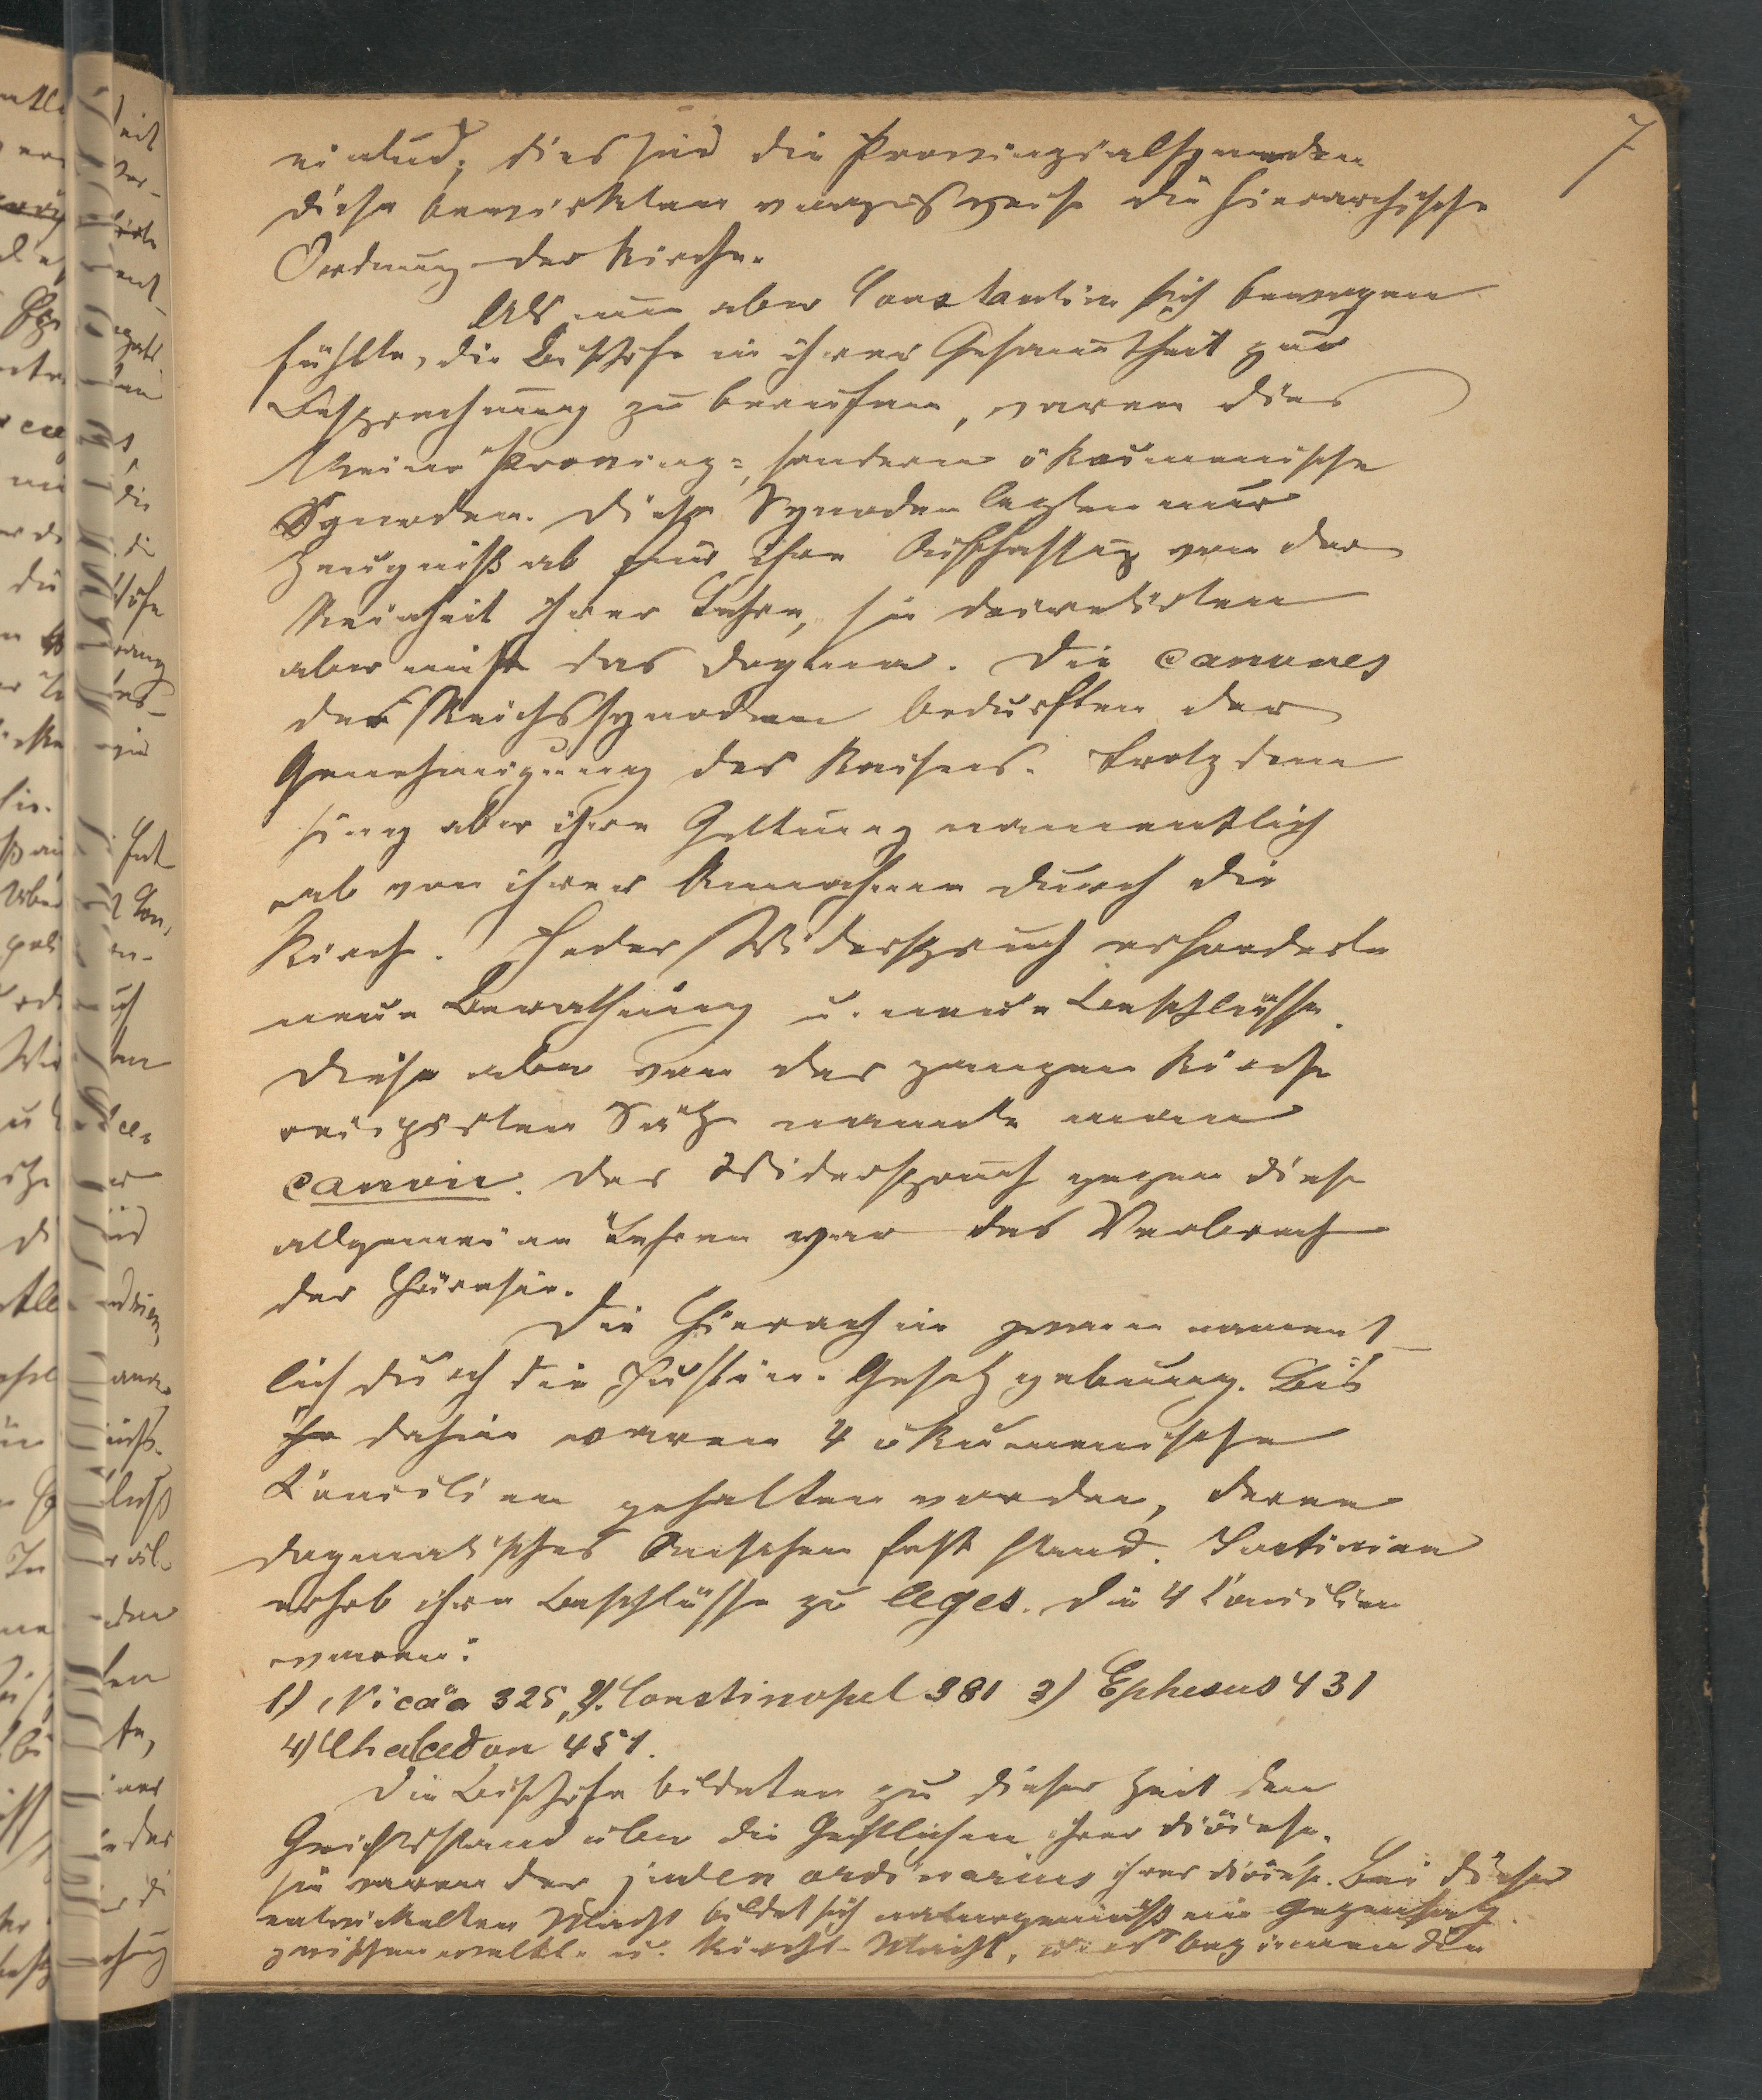 7
einlud; dies sind die Provinzialsynoden
diese bewirkten vorzugsweise die hierarchische
Ordnung der Kirche.
Als nun aber Constantin sich bewogen
fühlte, die Bischöfe in ihrer Gesammtheit zur
Besprechung zu berufen, waren dies
keine Provinz=, sondern ökumenische
Synoden. Diese Synoden legten nur
Zeugniß ab für ihre Auffassung von der
Reinheit ihrer Lehre, sie decretirten
aber nicht das Dogma. Die canones
der Reichssynoden bedurften der
Genehmigung des Kaisers. Trotzdem
hing aber ihre Geltung namentlich
ab von ihrer Annahme durch die
Kirche. Jeder Widerspruch erforderte
neue Berathung u. neue Beschlüsse.
Diese aber von der ganzen Kirche
recipirten Sätze nannte man
canon. Der Widerspruch gegen diese
allgemeine Lehren war das Verbrech
der Häresie.
Die Hierarchie gewann nament
lich durch die Justin. Gesetzgebung. Bis
dahin waren 4 ökumenische
Concilien gehalten worden, deren
dogmatisches Ansehen fest stand. Justinian
erhob ihre Beschlüsse zu leges. Die 4 Concilien
waren:
1) Nicäa 325, 2). Constinopel 381 3) Ephesus 431
4) Chalcedon 451.
Die Bischöfe bildeten zu dieser Zeit den
Gerichtsstand über die Geistlichen ihrer Diöcese.
sie waren der judex ordinarius ihrer Diöcese. Bei dieser
entwickelten Macht bildet sich naturgemäß ein Gegensatz
zwischen weltl. u. Kirchl. Macht, beginnen die